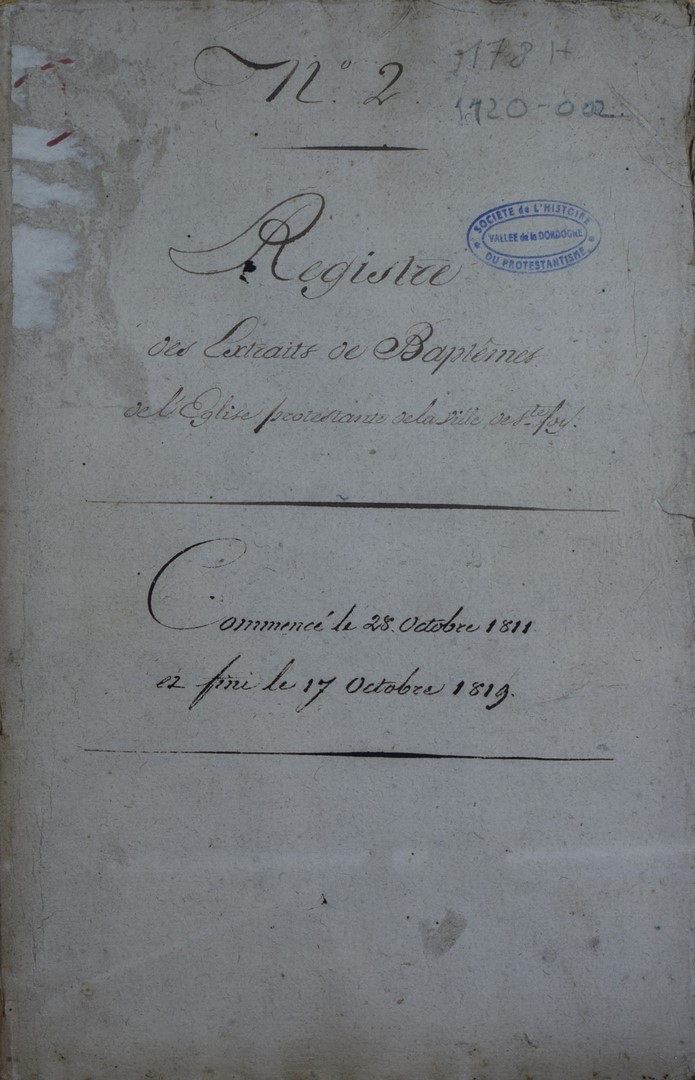 N.° 2
1178 H
1720-002
Registre
SOCIETE de L'HISTOIRE
VALLEE de la DORDOGNE
DU PROTESTANTISME
des Extraits de Baptêmes
de l'Eglise protestante de la ville de Ste foy.
Commencé le 28. Octobre 1811
et fini le 17 Octobre 1819.